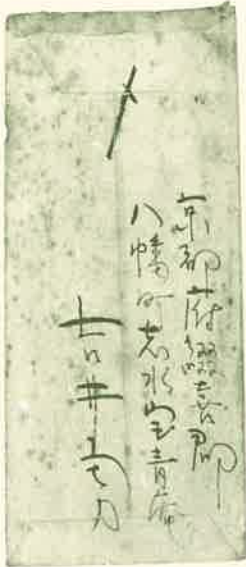 〆
京都府綴喜郡
八幡町志水宝青庵
吉井勇